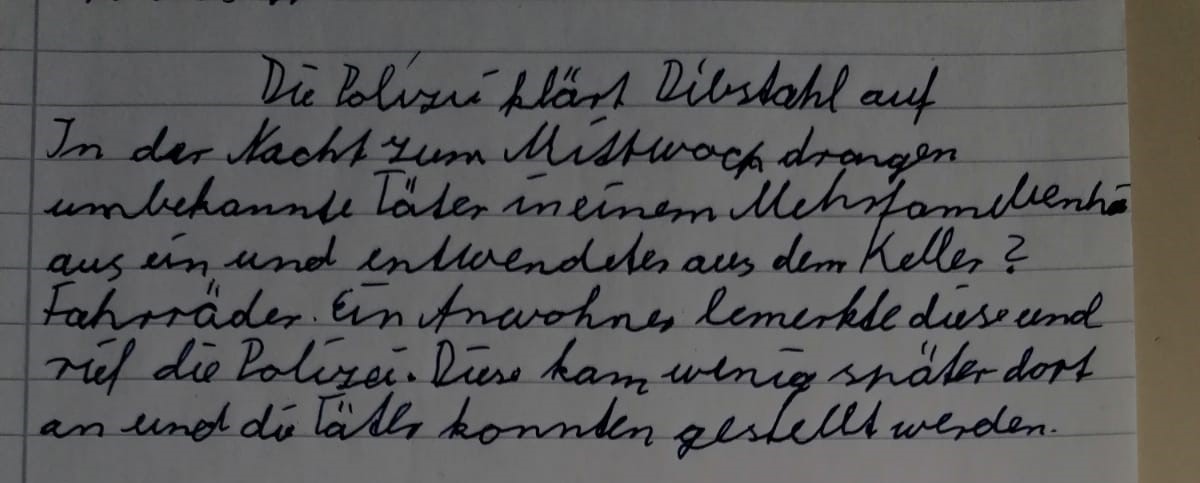 Die Polizei klärt Dibstahl auf
In der Nacht zum Mittwoch drangen
umbekannte Täter in einem Mehrfamilienh
aus ein und entwendeten aus dem Keller 2
Fahrräder. Ein Anwohner bemerkte diese und
rief die Polizei. Diese kam wenig später dort
an und die Täter konnten gestellt werden.